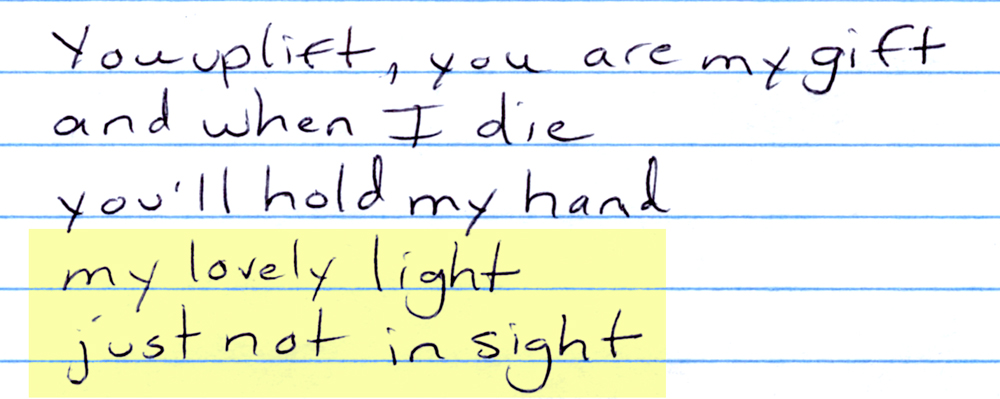 You uplift, you are my gift
and when I die
you'll hold my hand
my lovely light
just not in sight